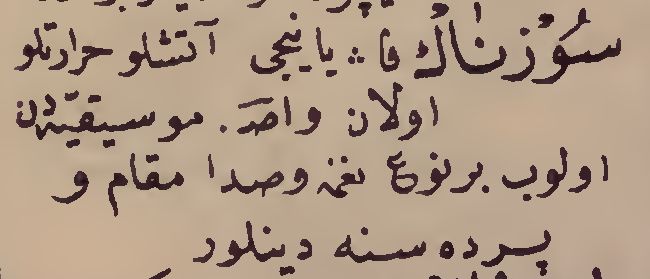 سُوْزناك فا ؞ يانيجى آتشلو حرارتلو
اولان واصد. موسيقيّه‌دن
اولوب بر نوع نغمه وصدا مقام و
پرده سنه دينلور